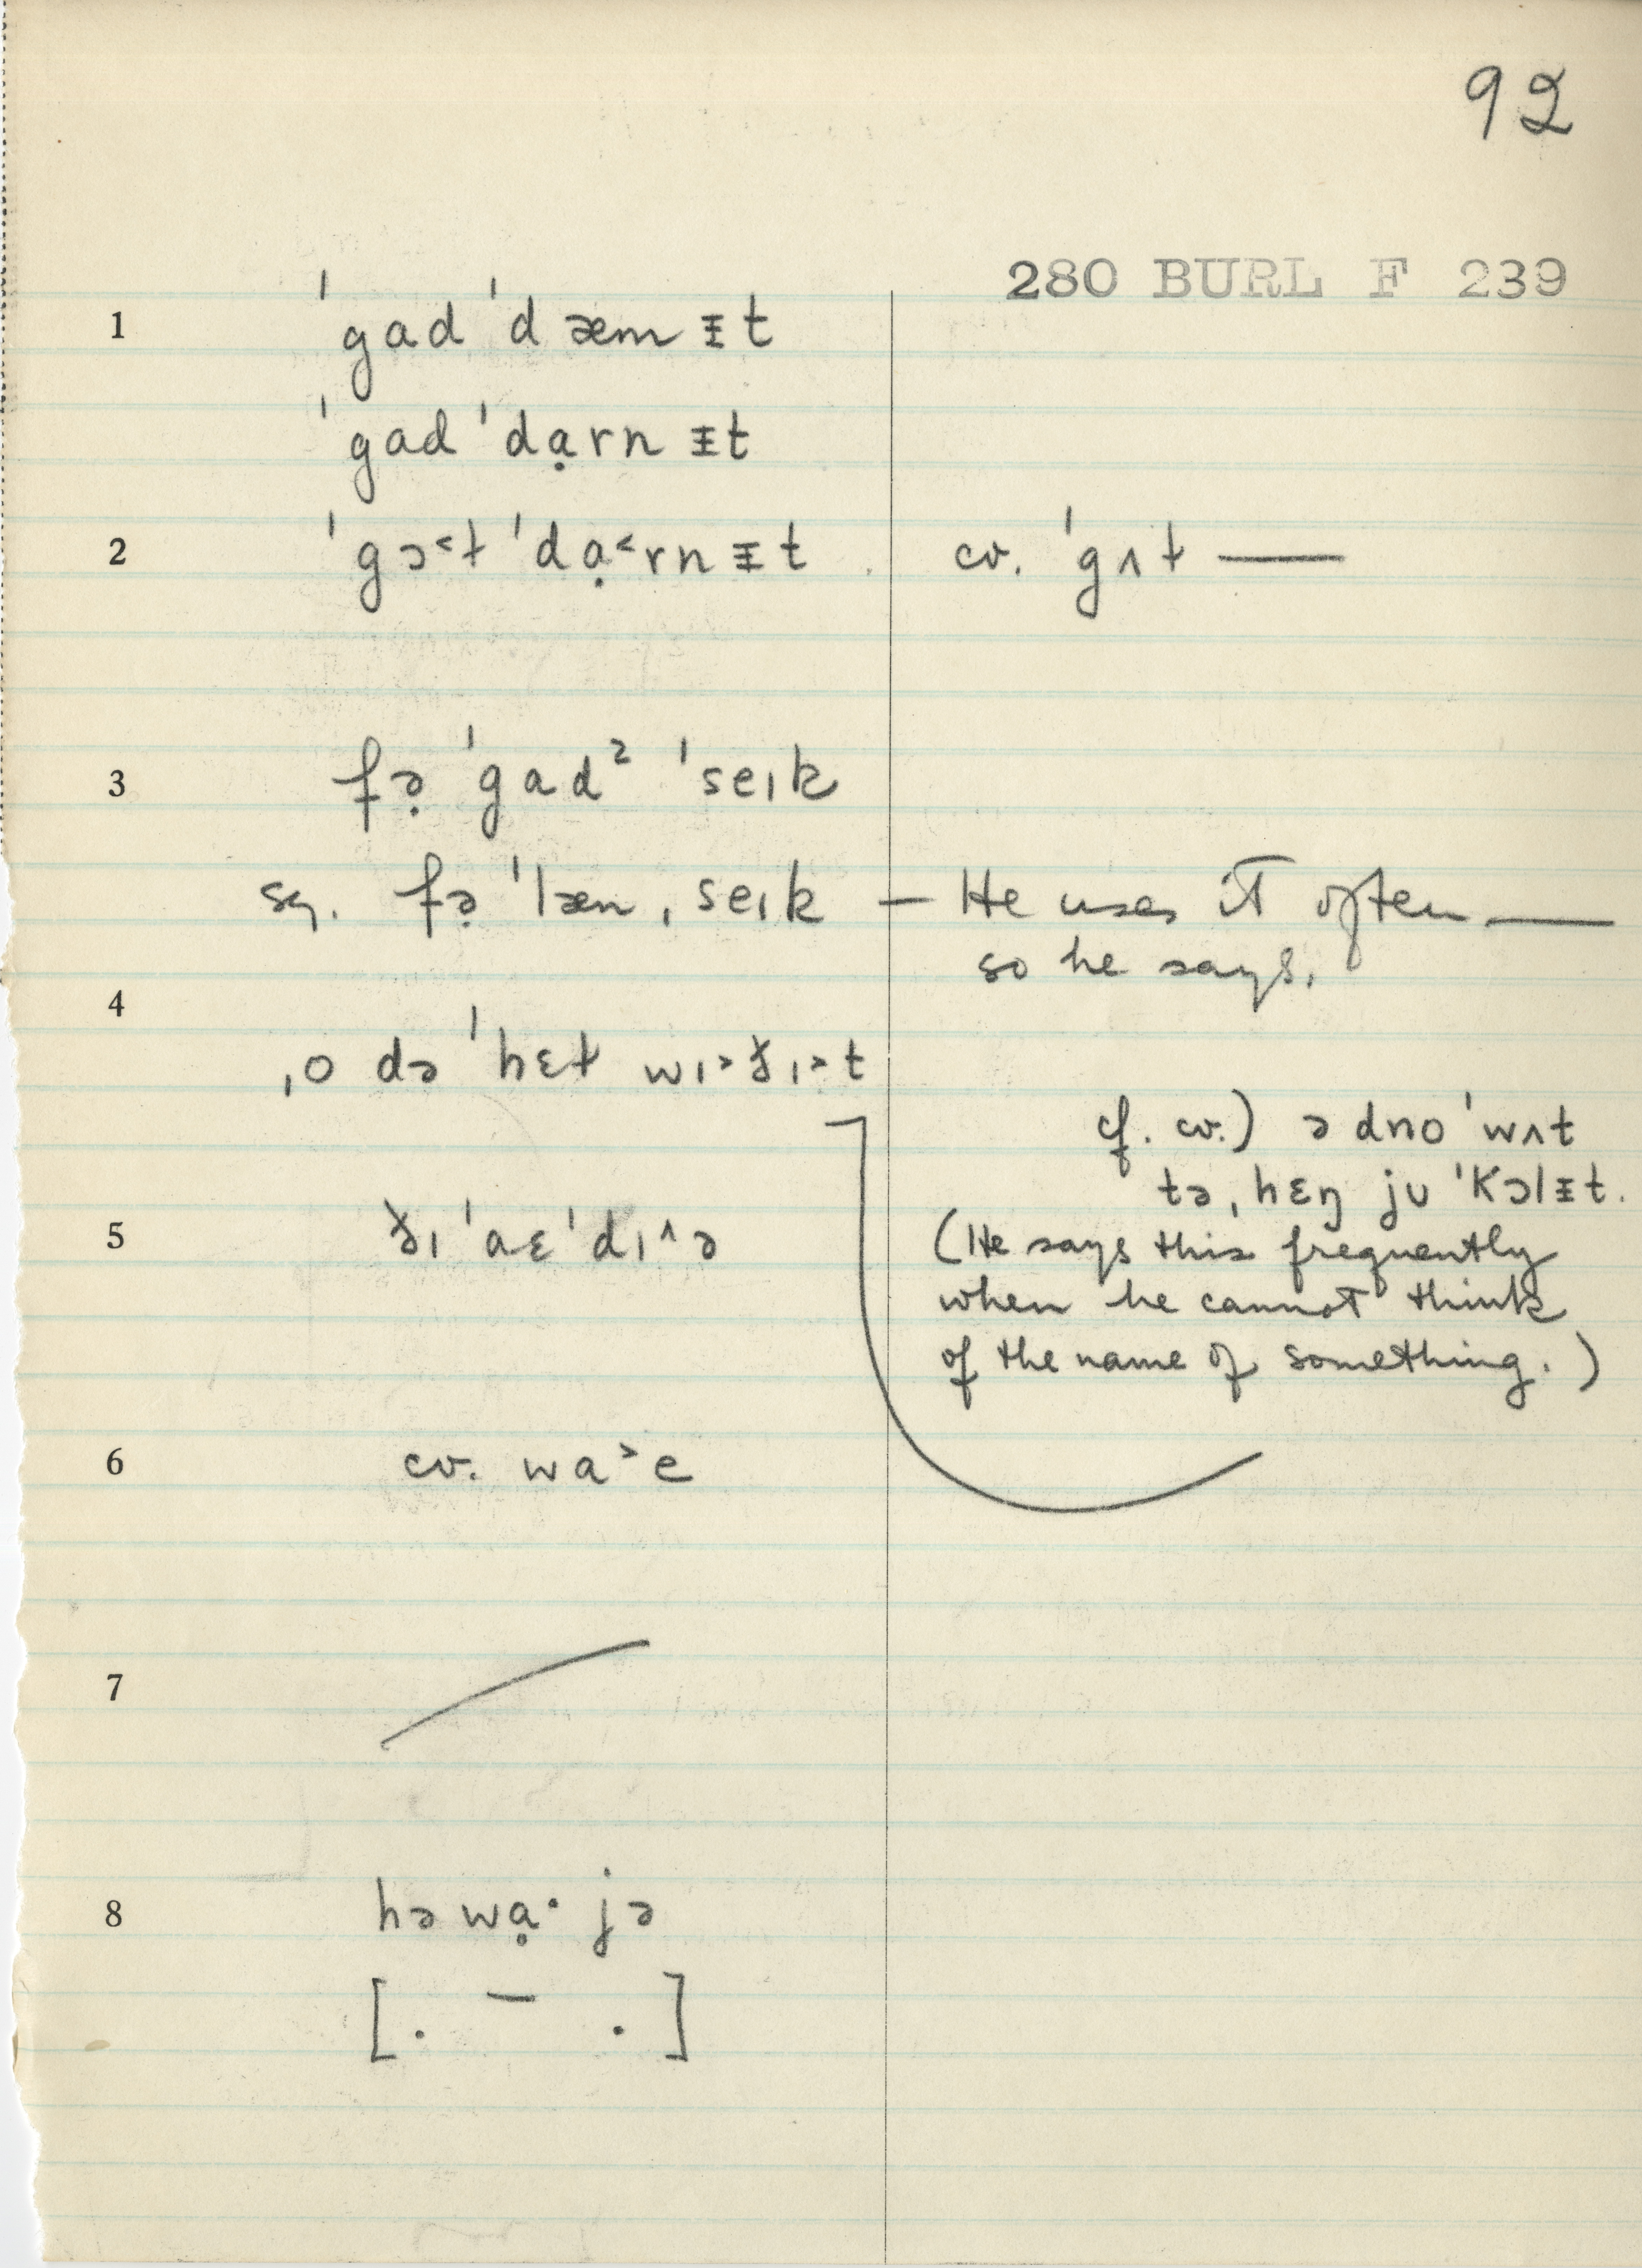 92
280 BURL F 239
1 ˈgad ˈdæm ᵻt
ˈgad ˈdạrn ᵻt
2 ˈgɔ˂ƚ ˈdạ˂rn ᵻt cv. ˈgʌƚ ——
3 fə̣ ˈgad² ˈseɪk
sq. fə̣ ˈlæn ˌseɪk — He uses it often ——
so he says.
4
ˌo də ˈhɛƚ wɪ˃ɟɪ˃t
cf. cv.) ə dno ˈwʌt
tə ˌhɛŋ jʊ ˈkɔlᵻt.
5 ɟɪ ˈaɛ ˈdɪ^ə (He says this frequently
when he cannot think
of the name of something.)
6 cv. wa˃e
7
8 hə wạ· jə
[. — .]